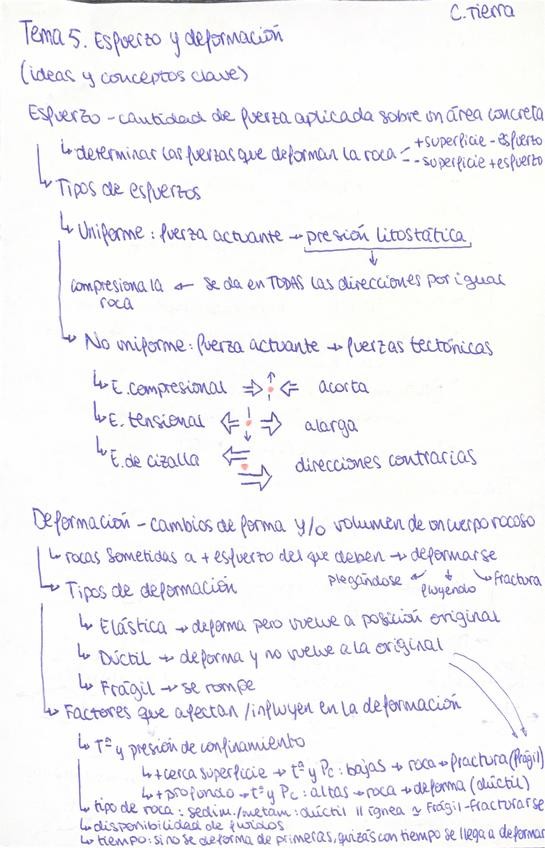 C. Tierra
Tema 5. Esfuerzo y deformación
(ideas y conceptos clave)
Esfuerzo - cantidad de fuerza aplicada sobre un área concreta
↳ determinar las fuerzas que deforman la roca = + superficie - esfuerzo
- superficie + esfuerzo
↳ Tipos de esfuerzos
↳ Uniforme: fuerza actuante → presión litostática
compresiona la ← se da en TODAS las direcciones por igual
roca
↳ No uniforme: fuerza actuante → fuerzas tectónicas
↳ E. compresional ⇒ ⇐ acorta
↳ E. tensional ⇐ ⇒ alarga
↳ E. de cizalla ⇐ ⇒ direcciones contrarias
Deformación - cambios de forma y/o volumen de un cuerpo rocoso
↳ rocas sometidas a + esfuerzo del que deben → deformarse
↳ Tipos de deformación plegándose ↙ ↓ fluyendo ↘ fractura
↳ Elástica → deforma pero vuelve a posición original
↳ Dúctil → deforma y no vuelve a la original
↳ Frágil → se rompe
↳ Factores que afectan/influyen en la deformación
↳ Tª y presión de confinamiento
↳ + cerca superficie → tª y Pc: bajas → roca → fractura (frágil)
↳ + profundo → tª y Pc: altas → roca → deforma (dúctil)
↳ tipo de roca: sedim./metam: dúctil || ígnea ≃ Frágil - fracturarse
↳ disponibilidad de fluidos
↳ tiempo: si no se deforma de primeras, quizás con tiempo se llega a deformar